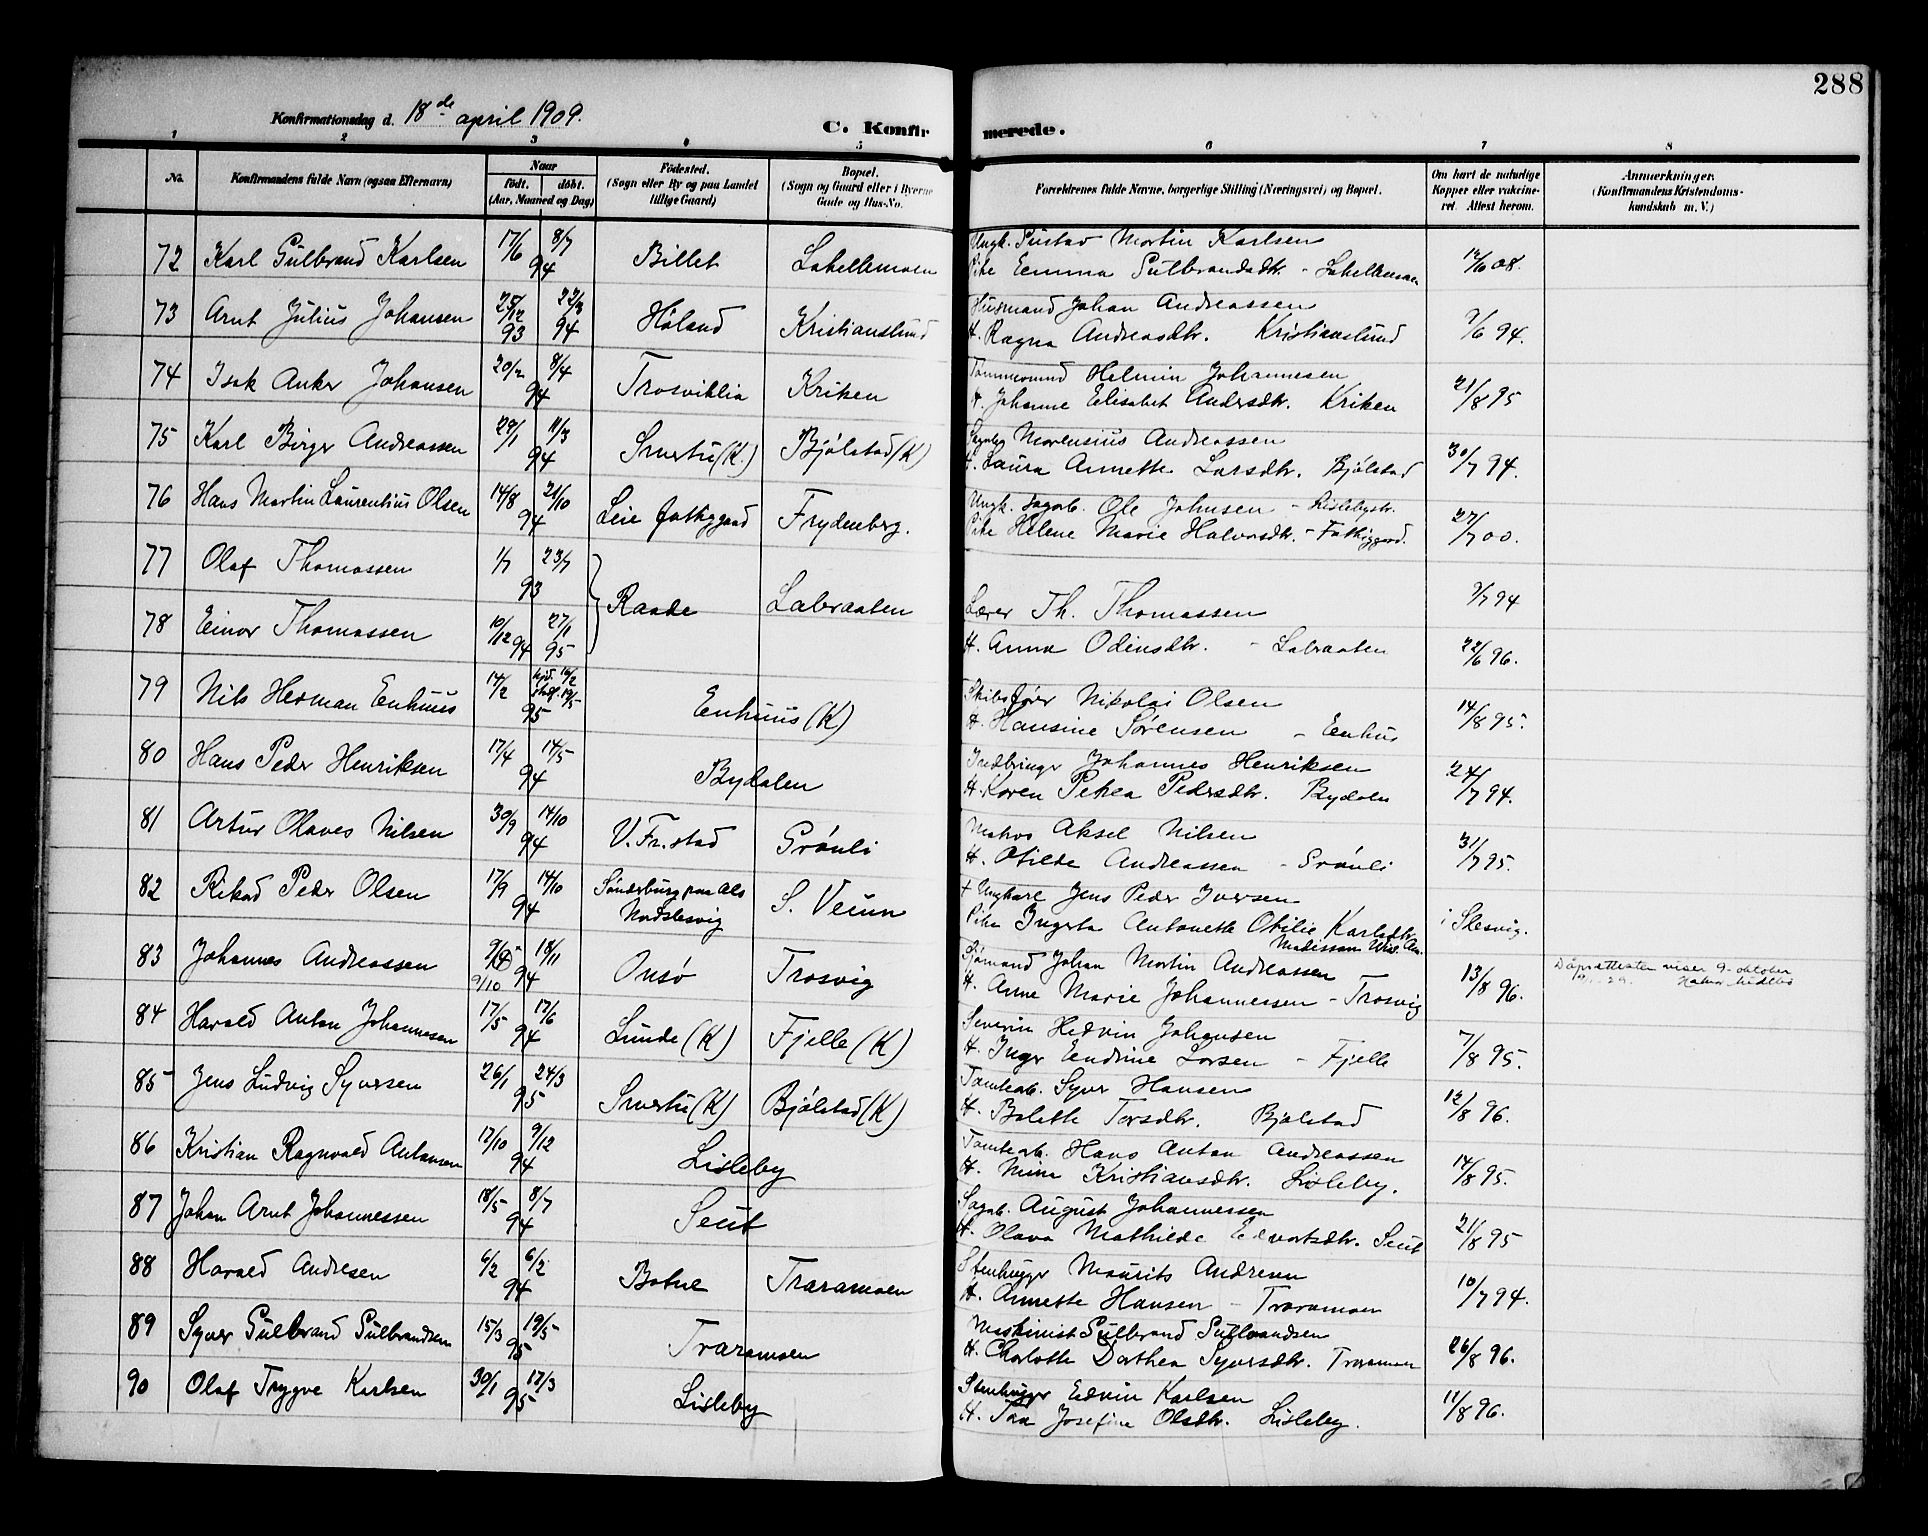 288
Konfirmationsdag d. 18de april 1909.
C. Konfir merede.
1 2 3 4 5 6 7 8
No. Konfirmandens fulde Navn (ogsaa Efternavn) Naar født. døbt. (Aar, Maaned og Dag) Födested. (Sogn eller By og paa Landet tillige Gaard) Bopæl. (Sogn og Gaard eller i Byerne Gade og Hus-No. Forældrenes fulde Navne, borgerlige Stilling (Næringsvei) og Bopæl. Om havt de naturlige Kopper eller vakcineret. Attest herom. Anmerkninger. (Konfirmandens Kristendomskundskab m. V.)
72 Karl Gulbrand Karlsen 17/6 8/7 94 Billet Labellemoen Ungk. Gustav Martin Karlsen 12/6 08.
Pike Emma Gulbrandsdtr. - Labellemoen
73 Arnt Julius Johansen 25/12 93 22/3 94 Høland Kristianslund Husmand Johan Andreassen 9/6 94.
H. Ragna Andreasdtr. Kristianslund
74 Isak Anker Johansen 20/2 8/4 94 Trosviklia Kriken Tømmermand Helmin Johannesen 21/8 95
H. Johanne Elisabet Andersdtr. Kriken
75 Karl Birger Andreassen 29/1 11/3 94 Smertu (K.) Bjølstad (K) Sagarb. Morensius Andreassen 30/7 94.
H. Laura Annette Larsdtr. Bjølstad
76 Hans Martin Laurentius Olsen 14/8 21/10 94 Leie fattiggaard Frydenberg. Ungk. Sagarb. Ole Johnsen - Lislebystr. 27/7 00.
Pike Helene Marie Halvorsdtr. - Fattiggaard.
77 Olaf Thomassen 1/7 23/7 93 Raade Labraaten Lærer Th. Thomassen 9/7 94
78 Einar Thomassen 10/12 94 27/1 95 H. Anna Odinsdtr. - Labraaten 22/6 96.
79 Nils Herman Enhuus 14/2 hjd. 16/2 stadf. 19/5 95 Enhuus (K) Skibsfører Nikolai Olsen 14/8 95.
H. Hansine Sørensen - Enhus
80 Hans Peder Henriksen 17/4 14/5 94 Bydalen Indbringer Johannes Henriksen 24/7 94.
H. Karen Petrea Pedersdtr. Bydalen
81 Artur Olaves Nilsen 30/9 14/10 94 V. Fr.stad Grønli Matros Aksel Nilsen 31/7 95.
H. Otilde Andreassen - Grønli
82 Rikard Peder Olsen 17/9 14/10 94 Sønderburg paa Als Nordslesvig S. Veum + Ungkarl Jens Peder Iversen i Slesvig.
Pike Ingerta Antonette Otilie Karlsdtr.
83 Johannes Andreassen 9/10 18/11 94 Onsø Trosvig Sjømand Johan Martin Andreassen 13/8 96. Dåpsattesten viser 9. oktober
H. Anne Marie Johannessen - Trosvig
84 Harald Anton Johannesen 17/5 17/6 94 Lunde (K) Fjelle (K) Severin Hedvin Johansen 7/8 95.
H. Inger Endrine Larsen - Fjelle
85 Jens Ludvig Syversen 26/1 24/3 95 Smertu (K) Bjølstad (K) Tomtearb. Syver Hansen 12/8 96.
H. Bolette Torsdtr. Bjølstad
86 Kristian Ragnvald Antonsen 17/10 9/12 94 Lisleby Tomtearb. Hans Anton Andreassen 14/8 95.
H. Mina Kristiansdtr. Lisleby.
87 Johan Arnt Johannessen 18/5 8/7 94 Seut Sagarb. August Johannessen 21/8 95
H. Olava Mathilde Edvartsdtr. Seut
88 Harald Andresen 6/2 6/2 94 Botne Traramoen Stenhugger Maurits Andresen 10/7 94.
H. Annette Hansen - Traramoen
89 Syver Gulbrand Gulbrandsen 15/3 19/5 95 Traramoen Maskinist Gulbrand Gulbrandsen 26/8 96.
H. Charlotte Dorthea Syversdtr. Traramoen
90 Olaf Trygve Karlsen 30/1 17/3 95 Lisleby Stenhugger Edvin Karlsen 11/8 96.
H. Josefine Olsdtr. Lisleby.